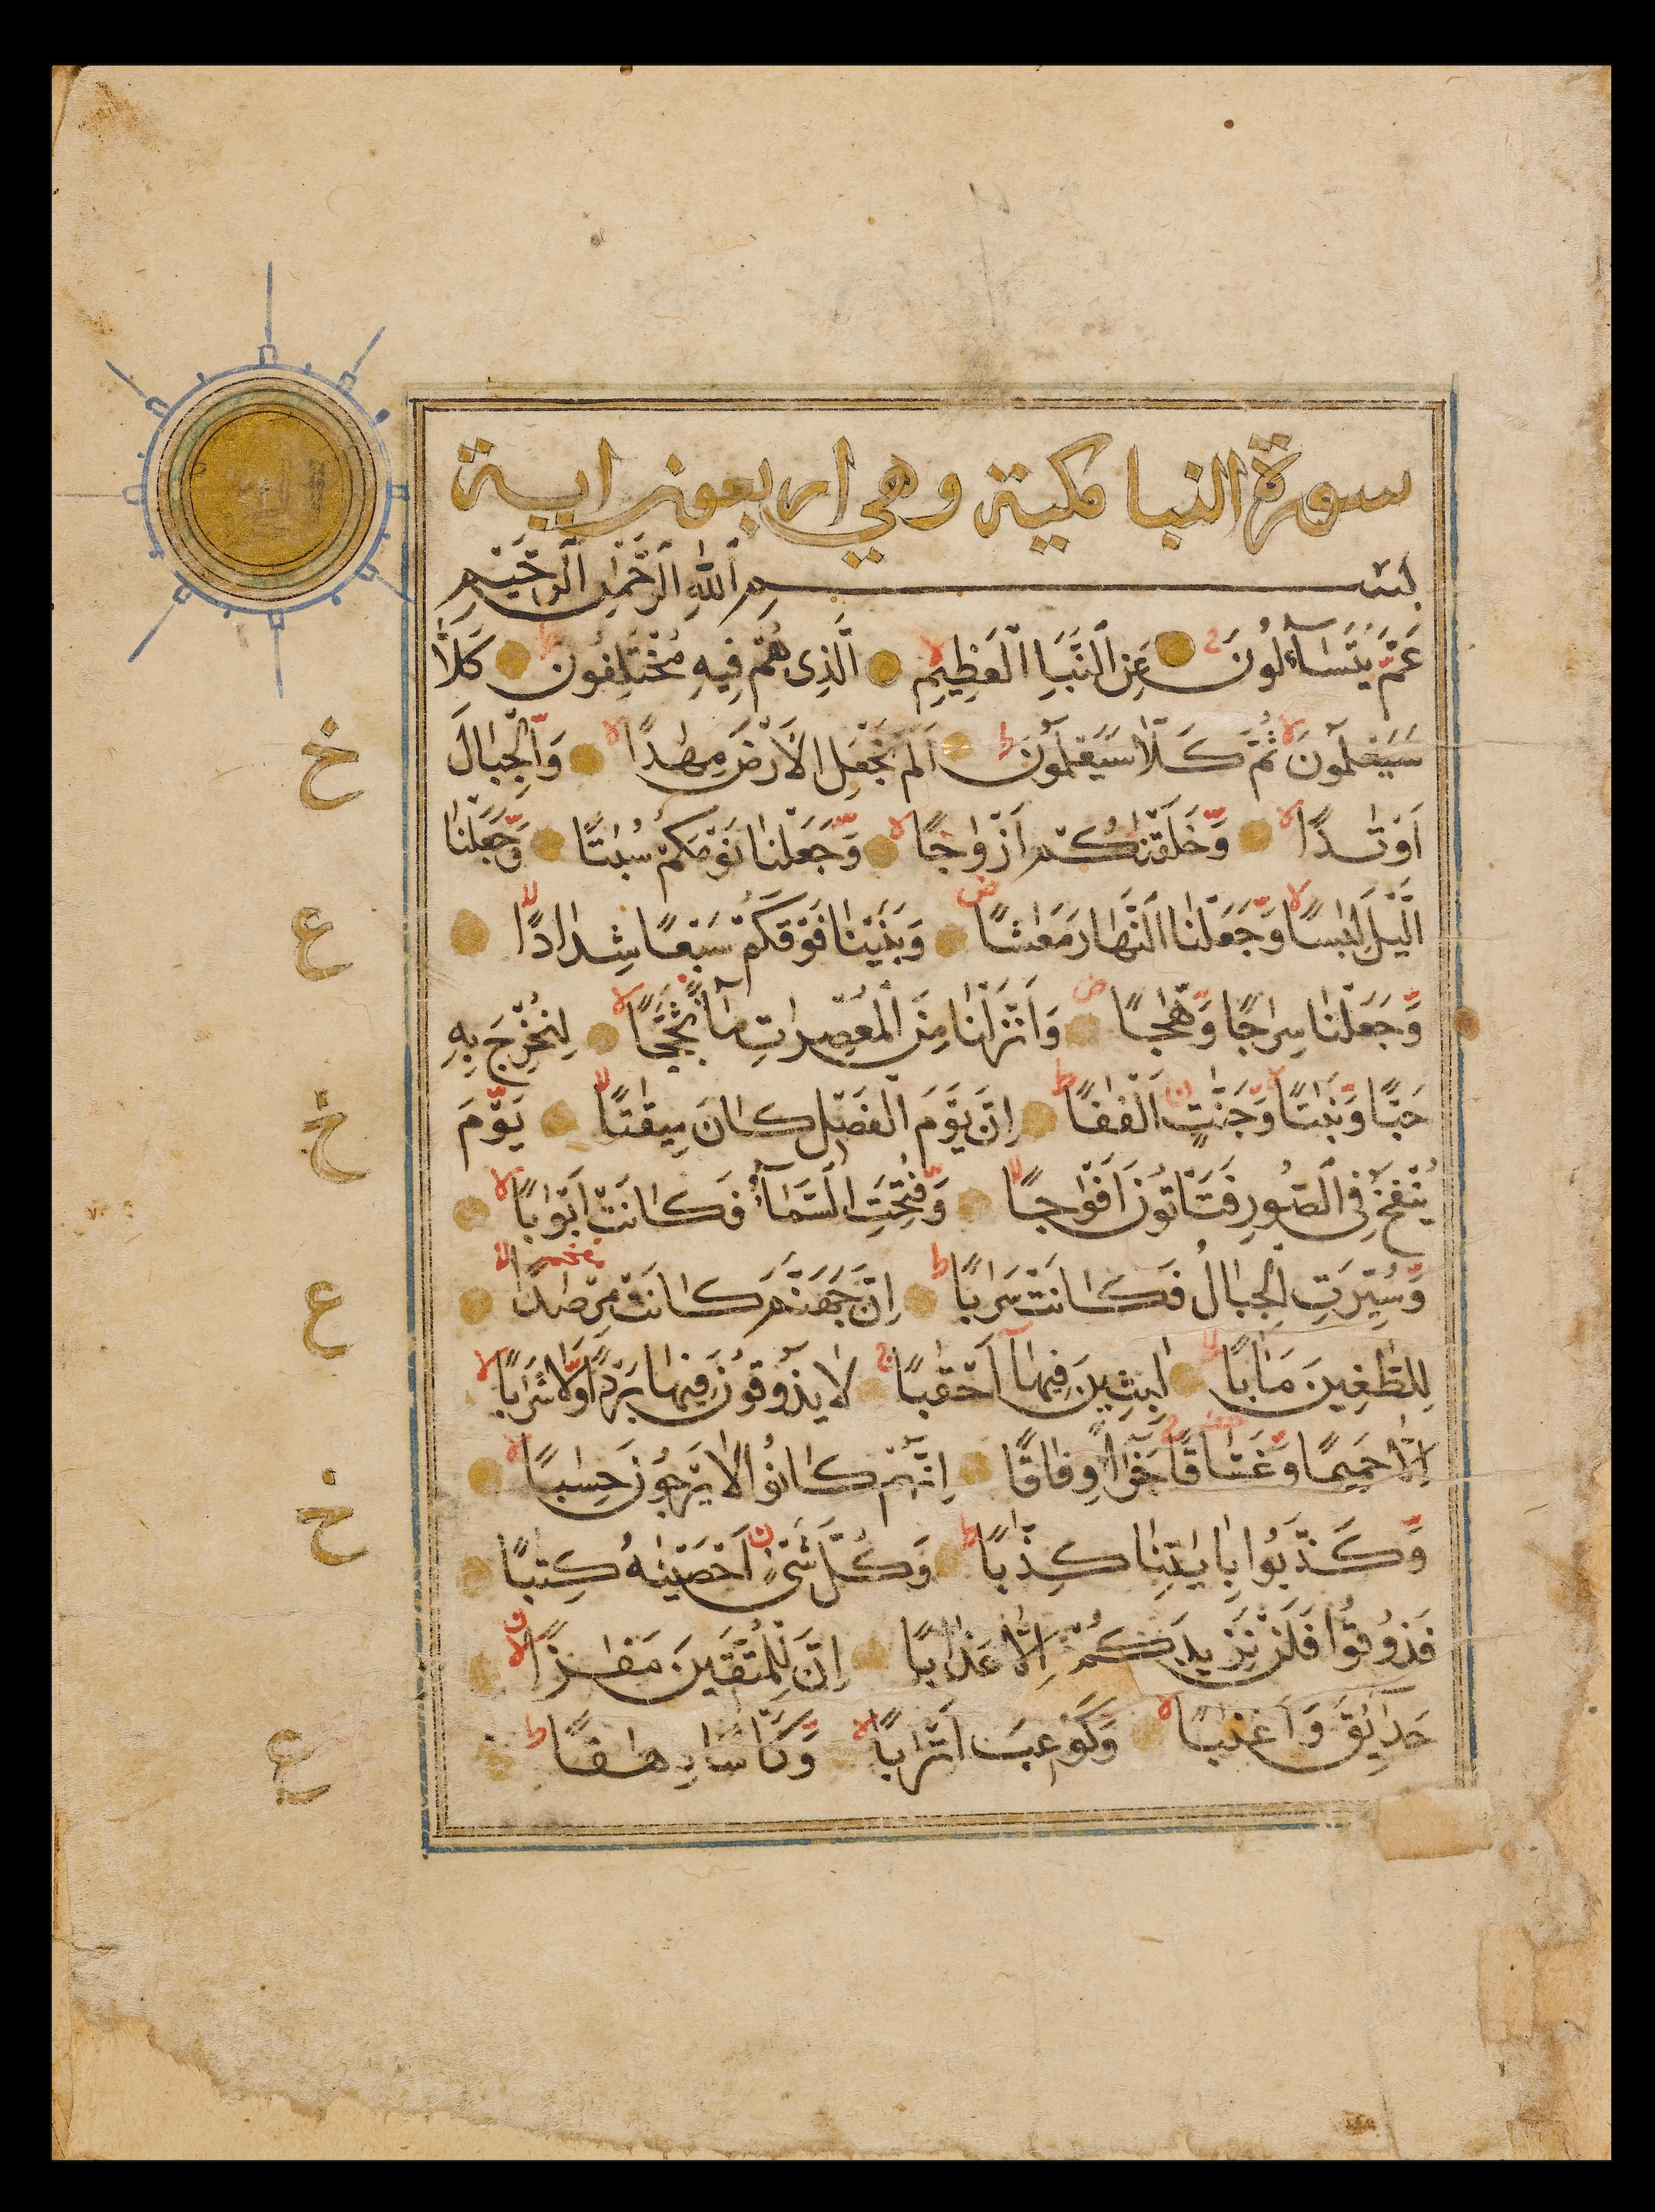 سورة النبا مكية وهي اربعون اية
بسم اللّٰه الرحمٰن الرحيم
عَمَّ يَتَسَآءَلُونَ عَنِ النَّبَاِ الْعَظِيمِ الَّذِى هُمْ فِيهِ مُخْتَلِفُونَ كَلَّا
سَيَعْلَمُونَ ثُمَّ كَلَّا سَيَعْلَمُونَ اَلَمْ نَجْعَلِ الْاَرْضَ مِهٰدًا وَالْجِبَالَ
اَوْتَادًا وَّخَلَقْنٰكُمْ اَزْوَاجًا وَّجَعَلْنَا نَوْمَكُمْ سُبَاتًا وَّجَعَلْنَا
الَّيْلَ لِبَاسًا وَّجَعَلْنَا النَّهَارَ مَعَاشًا وَبَنَيْنَا فَوْقَكُمْ سَبْعًا شِدَادًا
وَّجَعَلْنَا سِرَاجًا وَّهَّاجًا وَاَنْزَلْنَا مِنَ الْمُعْصِرٰتِ مَآءً ثَجَّاجًا لِنُخْرِجَ بِهِ
حَبًّا وَّنَبَاتًا وَّجَنّٰتٍ اَلْفَافًا اِنَّ يَوْمَ الْفَصْلِ كَانَ مِيقَاتًا يَوْمَ
يُنْفَخُ فِى الصُّورِ فَتَاْتُونَ اَفْوَاجًا وَّفُتِحَتِ السَّمَآءُ فَكَانَتْ اَبْوَابًا
وَّسُيِّرَتِ الْجِبَالُ فَكَانَتْ سَرَابًا اِنَّ جَهَنَّمَ كَانَتْ مِرْصَادًا
لِلطّٰغِينَ مَاٰبًا لٰبِثِينَ فِيهَآ اَحْقَابًا لَا يَذُوقُونَ فِيهَا بَرْدًا وَّلَا شَرَابًا
اِلَّا حَمِيمًا وَّغَسَّاقًا جَزَآءً وِفَاقًا اِنَّهُمْ كَانُوا لَا يَرْجُونَ حِسَابًا
وَّكَذَّبُوا بِاٰيٰتِنَا كِذَّابًا وَكُلَّ شَىْءٍ اَحْصَيْنٰهُ كِتٰبًا
فَذُوقُوا فَلَنْ نَزِيدَكُمْ اِلَّا عَذَابًا اِنَّ لِلْمُتَّقِينَ مَفَازًا
حَدَآئِقَ وَاَعْنَابًا وَّكَوَاعِبَ اَتْرَابًا وَّكَاْسًا دِهَاقًا
خ
ع
خ
ع
خ
ع